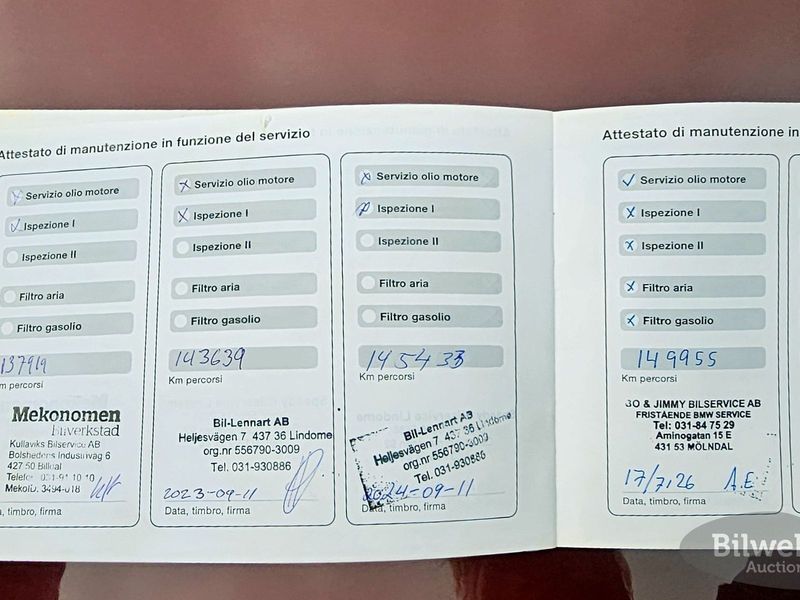 Attestato di manutenzione in funzione del servizio
Servizio olio motore
Ispezione I
Ispezione II
Filtro aria
Filtro gasolio
137919
Km percorsi
Mekonomen
Bilverkstad
Kullaviks Bilservice AB
Bolshedens Industriväg 6
427 50 Billdal
Telefon 031-91 10 10
MekoID. 3494-018
a, timbro, firma
Servizio olio motore
Ispezione I
Ispezione II
Filtro aria
Filtro gasolio
143639
Km percorsi
Bil-Lennart AB
Heljesvägen 7 437 36 Lindome
org.nr 556790-3009
Tel. 031-930886
2023-09-11
Data, timbro, firma
Servizio olio motore
Ispezione I
Ispezione II
Filtro aria
Filtro gasolio
145433
Km percorsi
Bil-Lennart AB
Heljesvägen 7 437 36 Lindome
org.nr 556790-3009
Tel. 031-930886
2024-09-11
Data, timbro, firma
Attestato di manutenzione in
Servizio olio motore
Ispezione I
Ispezione II
Filtro aria
Filtro gasolio
149955
Km percorsi
BO & JIMMY BILSERVICE AB
FRISTÅENDE BMW SERVICE
Tel: 031-84 75 29
Aminogatan 15 E
431 53 MÖLNDAL
17/7,26 A.E
Data, timbro, firma
Bilwel
Auction